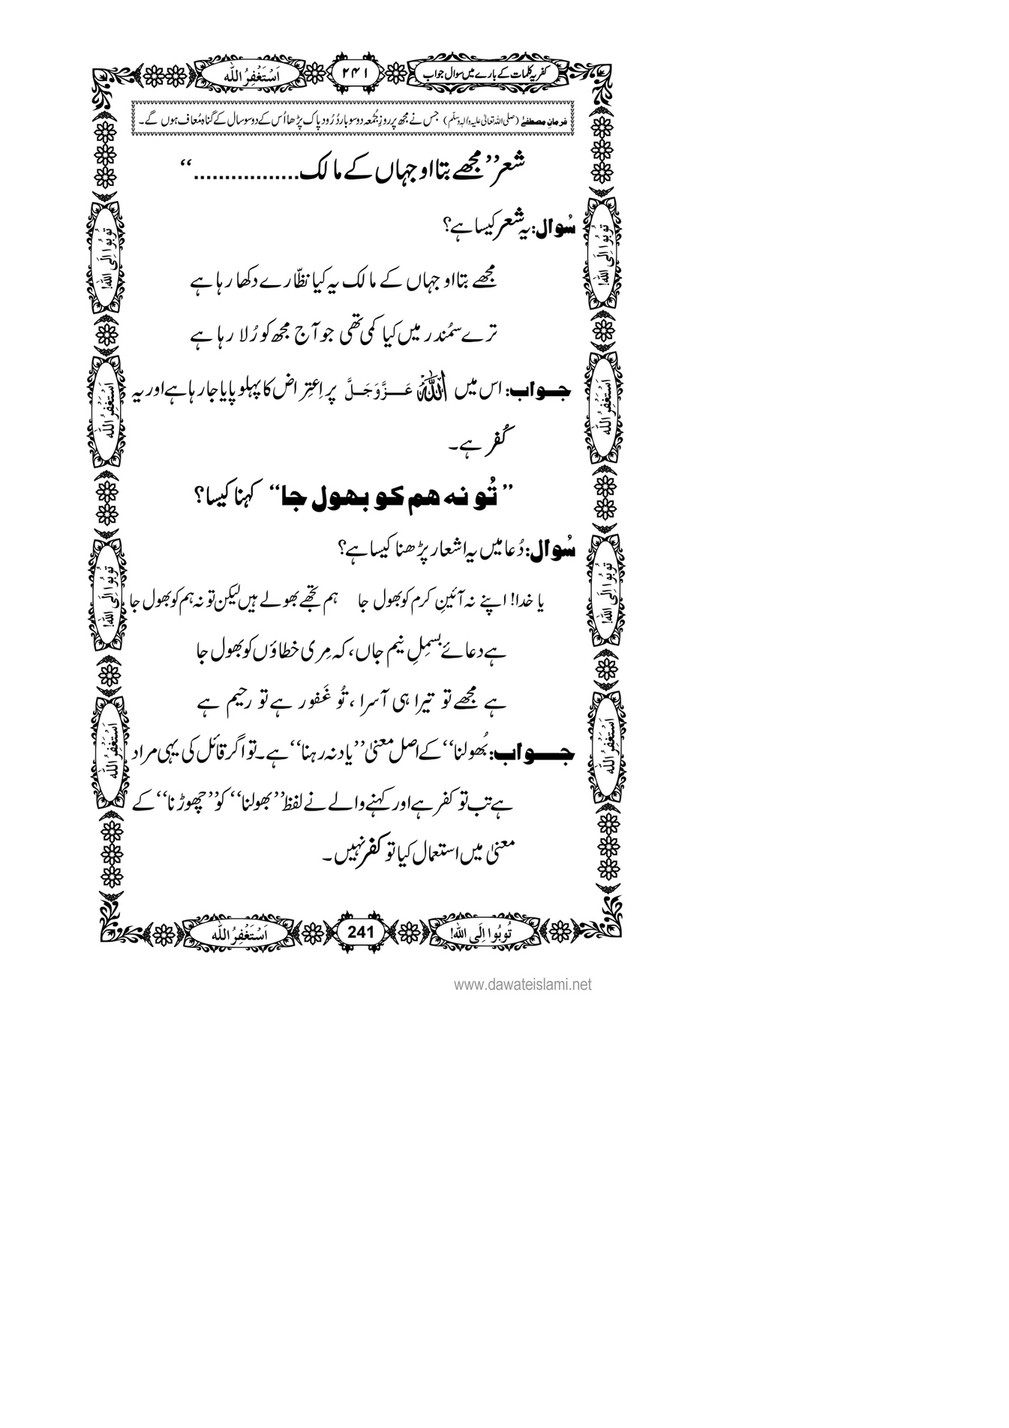 کفریہ کلمات کے بارے میں سوال جواب
۲۴۱
اَسْتَغْفِرُ اللّٰه
فرمانِ مصطفےٰ (صلی اللہ تعالیٰ علیہ واٰلہٖ وسلم) جس نے مجھ پر روزِ جُمُعہ دو سو بار دُرُود پاک پڑھا اُس کے دو سو سال کے گناہ مُعاف ہوں گے۔
شعر ’’مجھے بتا او جہاں کے مالک.................‘‘
سُوال: یہ شعر کیسا ہے؟
مجھے بتا او جہاں کے مالک یہ کیا نظّارے دکھا رہا ہے
ترے سمُندر میں کیا کمی تھی جو آج مجھ کو رُلا رہا ہے
جواب: اس میں اللہ عَزَّوَجَلَّ پر اِعتِراض کا پہلو پایا جا رہا ہے اور یہ
کُفر ہے۔
’’تُو نہ ہم کو بھول جا‘‘ کہنا کیسا؟
سُوال: دُعا میں یہ اشعار پڑھنا کیسا ہے؟
یا خدا! اپنے نہ آئینِ کرم کو بھول جا ہم تجھے بھولے ہیں لیکن تو نہ ہم کو بھول جا
ہے دعائے بسمِلِ نیم جاں، کہ مِری خطاؤں کو بھول جا
ہے مجھے تو تیرا ہی آسرا ، تُو غَفور ہے تو رحیم ہے
جواب: بُھولنا‘‘ کے اصل معنیٰ ’’یاد نہ رہنا‘‘ ہے۔ تو اگر قائل کی یہی مراد
ہے تب تو کفر ہے اور کہنے والے نے لفظ ’’بھولنا‘‘ کو ’’چھوڑنا‘‘ کے
معنیٰ میں استعمال کیا تو کفر نہیں۔
تُوبُوا اِلَی اللّٰه!
اَسْتَغْفِرُ اللّٰه
تُوبُوا اِلَی اللّٰه!
اَسْتَغْفِرُ اللّٰه
تُوبُوا اِلَی اللّٰه!
اَسْتَغْفِرُ اللّٰه
تُوبُوا اِلَی اللّٰه!
اَسْتَغْفِرُ اللّٰه
تُوبُوا اِلَی اللّٰه!
241
اَسْتَغْفِرُ اللّٰه
www.dawateislami.net